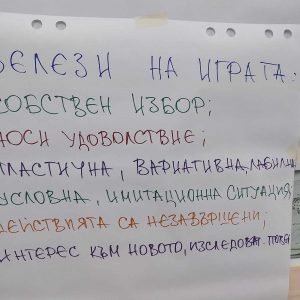 БЕЛЕЗИ НА ИГРАТА:
СОБСТВЕН ИЗБОР;
НОСИ УДОВОЛСТВИЕ;
ПЛАСТИЧНА, ВАРИАТИВНА, ЛАБИЛНА
УСЛОВНА, ИМИТАЦИОННА СИТУАЦИЯ;
ДЕЙСТВИЯТА СА НЕЗАВЪРШЕНИ;
ИНТЕРЕС КЪМ НОВОТО, ИЗСЛЕДОВАТ.